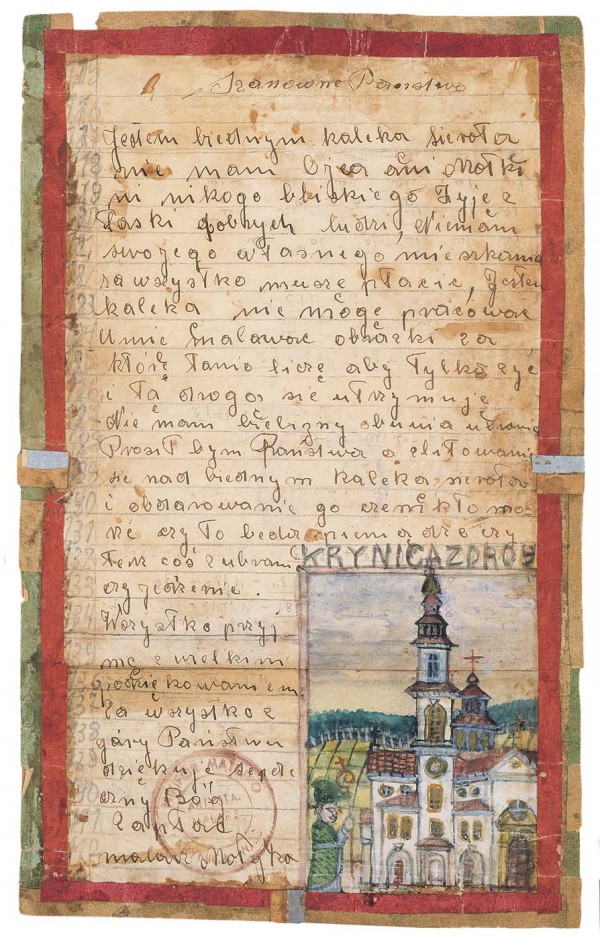 Szanowne Państwo
Jestem biednym kaleka sierota
nie mam Ojca ani Matki
ni nikogo bliskiego Żyje z
Łaski dobrych ludzi, Niemam
swojego własnego mieszkania
za wszystko musze płacic, Jestem
kaleka nie moge pracować
Umie malawac obrazki za
które tanio licze aby tylko żyć
i tą drogą się utrzymuję
Nie mam bielizny obuwia ubrania
Prosił bym Państwa o zlitowanie
sie nad biednym kaleka sierota
i obdarowanie go czem kto mo
że czy to bedzie pieniądze czy
też coś z ubrania
czy jedzenie.
KRYNICAZDROJ
Wszystko przyj
me z wielkim
podziękowaniem
Za wszystko z
góry Państwu
dziękuje serde
czny Bóg
Zapłać
malarz Motyka